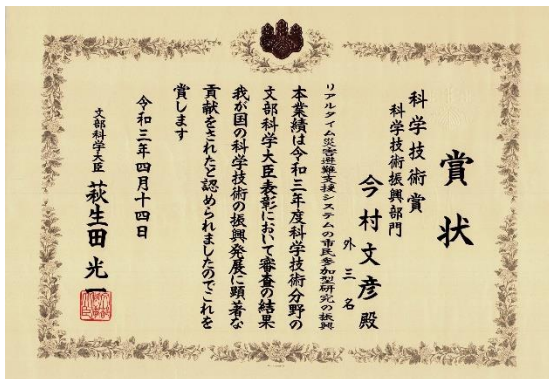 賞状
科学技術賞
科学技術振興部門
今村文彦殿
外三名
リアルタイム災害避難支援システムの市民参加型研究の振興
本業績は令和三年度科学技術分野の
文部科学大臣表彰において審査の結果
我が国の科学技術の振興発展に顕著な
貢献をされたと認められましたのでこれを
賞します
令和三年四月十四日
文部科学大臣 萩生田光一